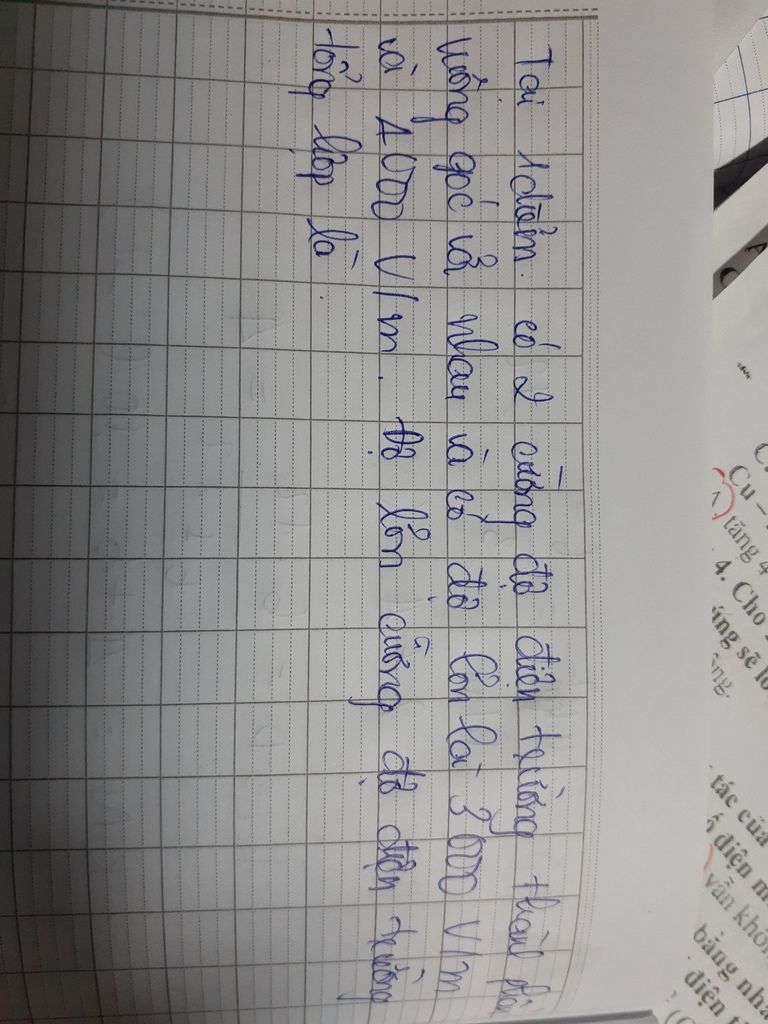 Tại 1 điểm có 2 cường độ điện trường thành phần
vuông góc với nhau và có độ lớn là 3000 V/m
và 4000 V/m. Độ lớn cường độ điện trường
tổng hợp là
Cu –
1. tăng 4
4. Cho
úng sẽ
tác của
điện
vẫn khôn
bằng nha
điện